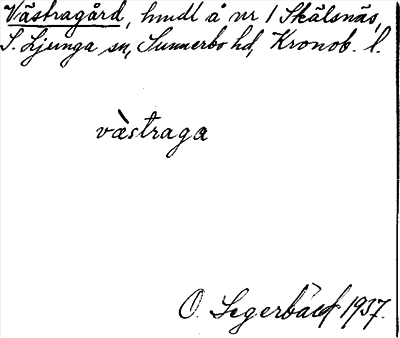 Västragård, hmdl å nr 1 Skälsnäs,
S. Ljunga sn, Sunnerbo hd, Kronob. l.
vàstraga
O. Segerbäck 1937.